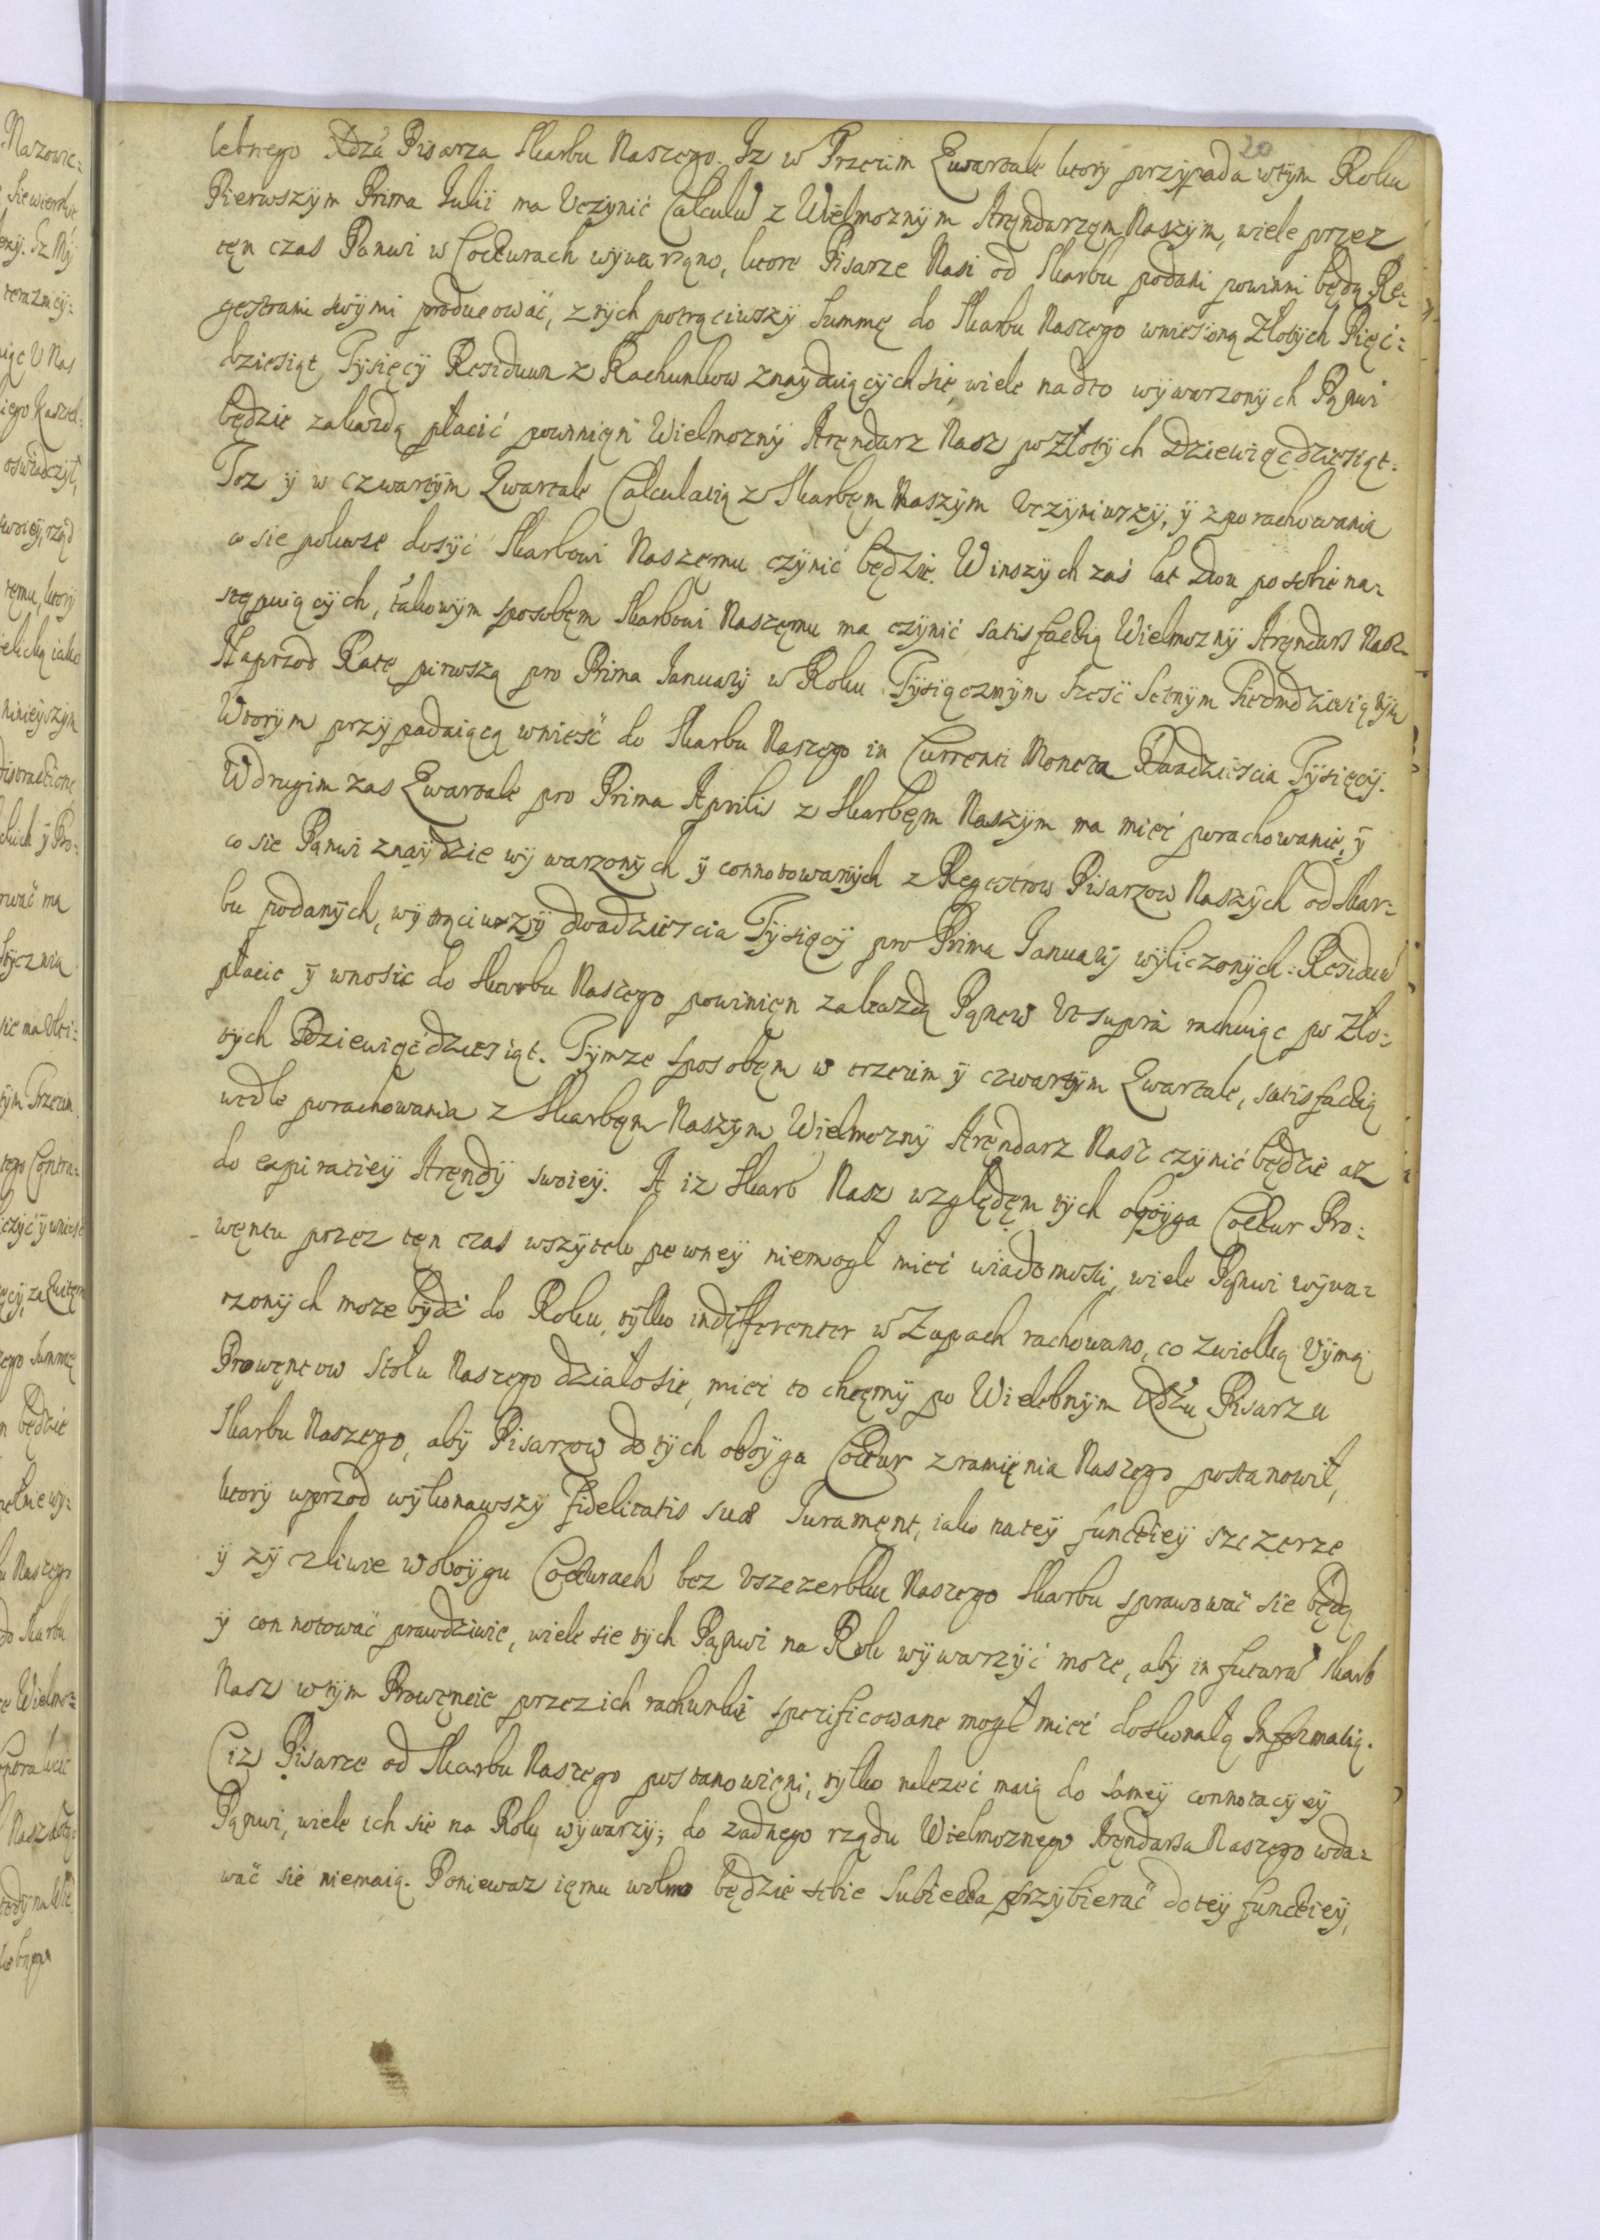 20
lebnego Xdza Pisarza Skarbu Naszego. Iz w Trzecim Kwartale ktory przypada wtym Roku
Pierwszym Prima Iulii ma Uczynić Calculum z Wielmoznym Aręndarzęm Naszym, wiele przez
tęn czas Panwi w Cocturach wywarzęno, ktore Pisarze Nasi od Skarbu podani powinni będą Re=
gestrami swymi producować, z tych potrąciwszy Summę do Skarbu Naszego wniesioną Złotych Pięć=
dziesiąt Tysięcy Residuum z Rachunkow znayduiących się, wiele nadto wywarzonych Pąnwi
będzie zakazdą płacić powinięn Wielmozny Aręndarz Nasz po Złotych Dziewięćdziesiąt.
Toz y w czwartym Qwartale Calculatią z Skarbęm Naszym Uczyniwszy, y z porachowania
co sie pokaze dosyć Skarbowi Naszemu czynić będzie. W inszych zaś lat dwu po sobie na=
stępuiących, takowym sposobęm Skarbowi Naszęmu ma czynić satisfactią Wielmozny Aręndarz Nasz
Naprzod Ratę pirwszą pro Prima Ianuarij w Roku Tysiącznym Szesć Setnym Siedmdziesiątym
Wtorym przypadaiącą wnieść do Skarbu Naszego in Currenti Moneta Dwadziescia Tysięcy.
W drugim zas Kwartale pro Prima Aprilis z Skarbęm Naszym ma mieć porachowanie, y
co sie Pąnwi znaydzie wywarzonych y connotowanych z Regestrow Pisarzow Naszych od Skar=
bu podanych, wytrąciwszy dwadziescia Tysięcy pro Prima Ianuarij wyliczonych. Residuum
płacic y wnosic do Skarbu Naszego powinięn zakazdą Pąnew Ut supra rachuiąc po Zło=
tych Dziewięćdziesiąt. Tymze sposobęm w trzecim y czwartym Qwartale, satisfactią
wedle porachowania z Skarbęm Naszym Wielmozny Aręndarz Nasz czynić będzie az
do expiratiey Aręndy swoiey. A iz Skarb Nasz względęm tych oboyga Coctur Pro=
węntu przez tęn czas wszytek pewney niemogł mieć wiadomości, wiele Pąnwi wywa=
rzonych moze bydź do Roku, tylko indifferenter w Zupach rachowano, co z wielką Uymą
Prowęntow Stołu Naszego działo sie, mieć to chcęmy po Wielebnym Xdzu Pisarzu
Skarbu Naszego, aby Pisarzow do tych oboyga Coctur z ramięnia Naszego postanowił,
ktory wprzod wykonawszy fidelitatis suæ Iuramęnt, iako na tey functiey szczerze
y zyczliwie w oboygu Cocturach bez Uszczerbku Naszego Skarbu sprawować sie będą
y connotować prawdziwie, wiele sie tych Pąnwi na Rok wywarzyć moze, aby in futurum Skarb
Nasz wtym Prowęncie przez ich rachunki specificowane mogł mieć doskonałą Informatią.
Ciz Pisarze od Skarbu Naszego postanowięni, tylko nalezeć maią do samey connotacyey
Pąnwi, wiele ich sie na Roku wywarzy; do zadnego rządu Wielmoznego Aręndarza Naszego wda=
wać sie niemaią. Poniewaz ięmu wolno będzie sobie Subiecta przybierać do tey functiey,